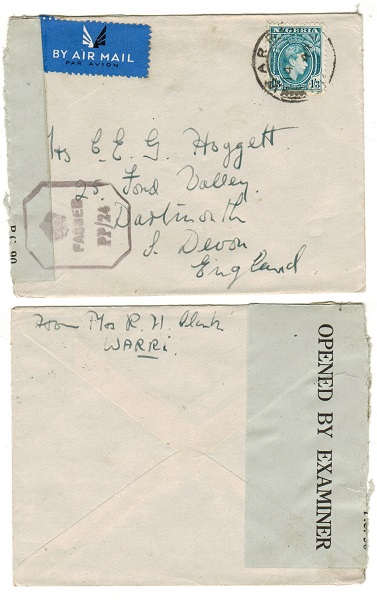 BY AIR MAIL
PAR AVION
NIGERIA
1/3
Mrs C. E. G. Hoggett
25. Ford Valley.
Dartmouth
S. Devon
England.
PASSED
PP/24
P.C. 90
From Mrs R. H.
WARRI.
OPENED BY EXAMINER